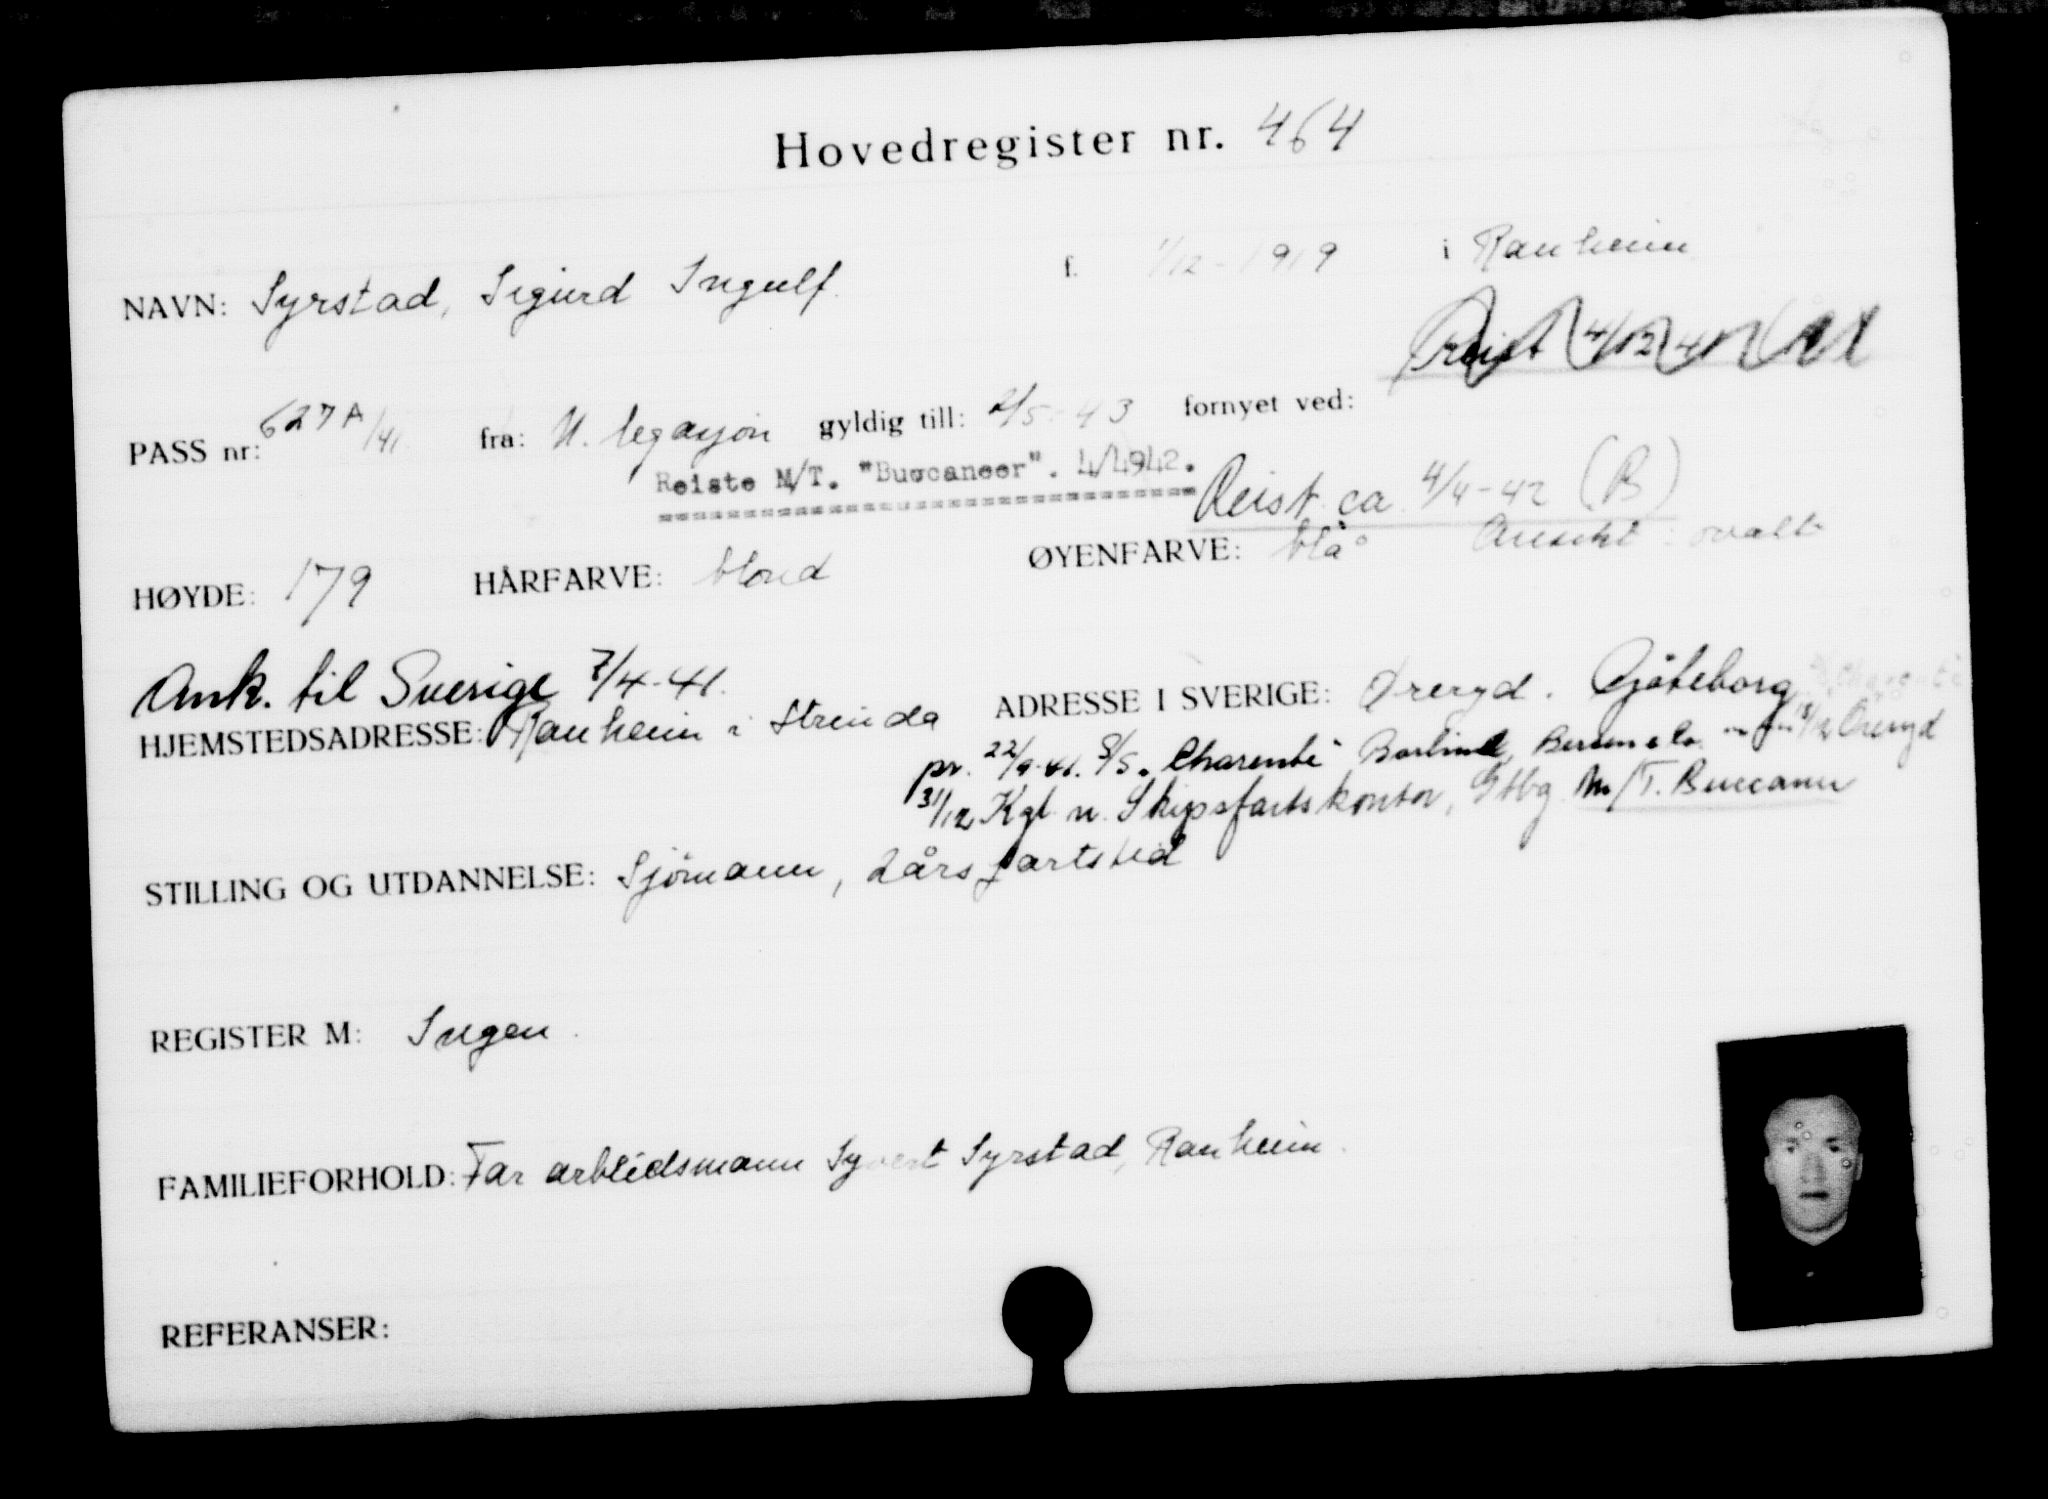 Hovedregister nr. 464
NAVN: Syrstad, Sigurd Ingulf. f. 1/12-1919 i Ranheim
Reist 4/12 41
PASS nr: 627A/41. fra: N. legasjon gyldig till: 2/5-43 fornyet ved:
Reiste M/T. "Buccaneer". 4/4942. Reist ca. 4/4-42 (B)
HØYDE: 179 HÅRFARVE: blond ØYENFARVE: blå Ansikt: ovalt
Ank. til Sverige 7/4-41.
HJEMSTEDSADRESSE: Ranheim i Strinda ADRESSE I SVERIGE: Øreryd. Gøteborg
pr. 22/9-41. S/S. Charente 18/12 Øreryd
31/12 Kgl. n. Skipsfartskontor, Gtbg M/T. Buccaneer
STILLING OG UTDANNELSE: Sjömann, 2 års fartstid
REGISTER M: Ingen.
FAMILIEFORHOLD: Far arbeidsmann Syvert Syrstad, Ranheim.
REFERANSER: